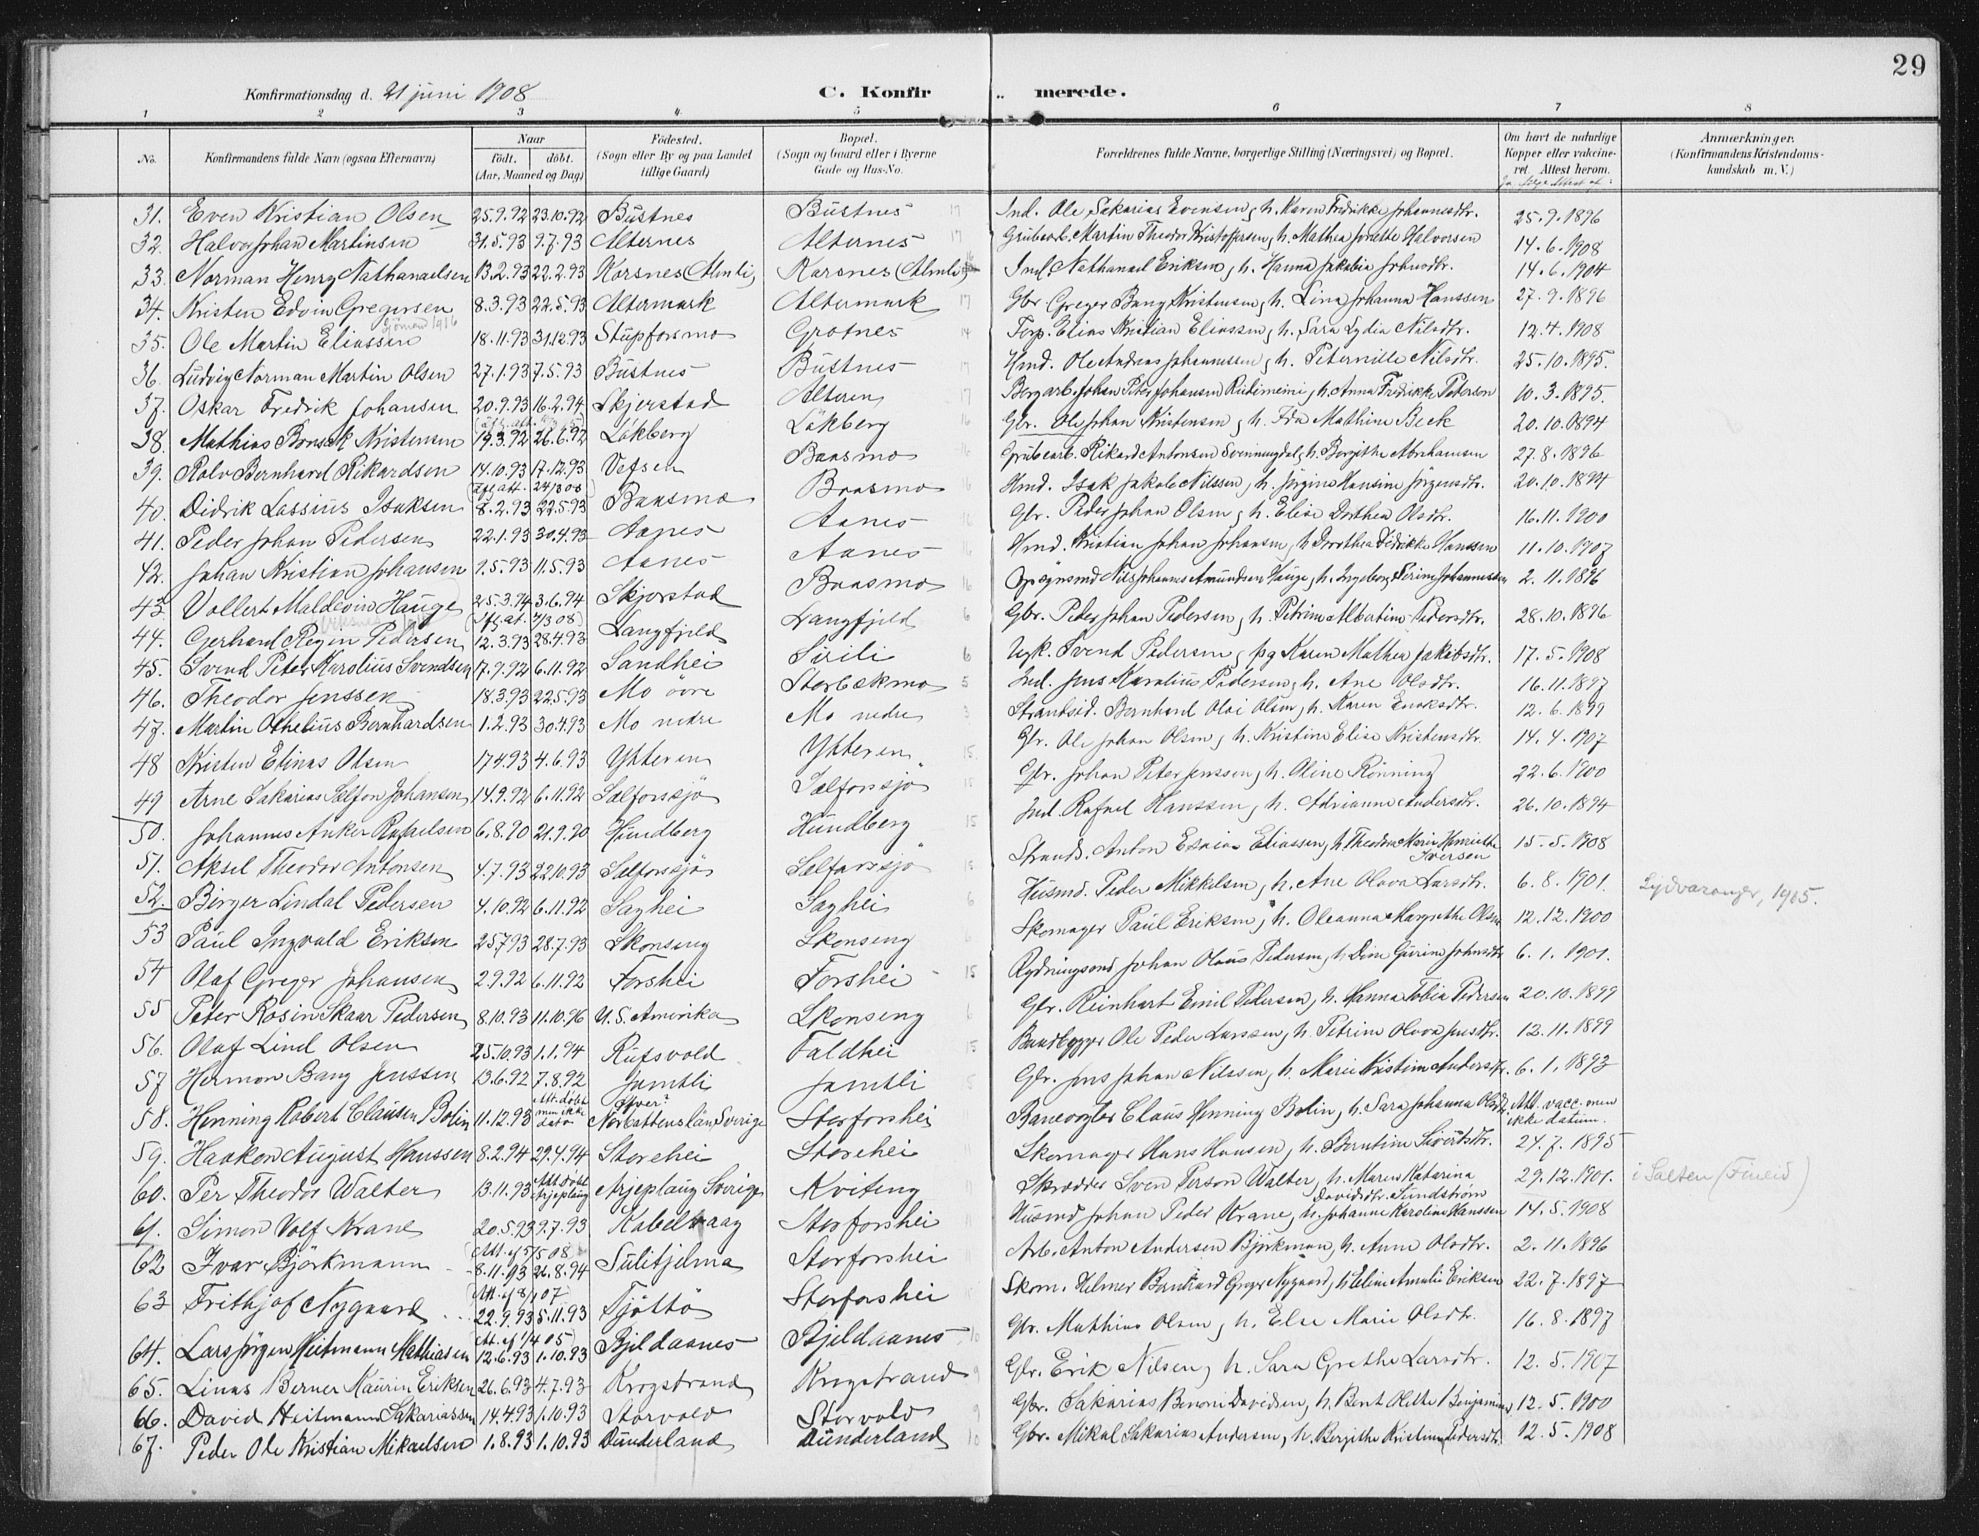 29
Konfirmationsdag d. 21 juni 1908 C. Konfir merede.
1 2 3 4 5 6 7 8
No. Konfirmandens fulde Navn (ogsaa Efternavn) Naar født. døbt. (Aar, Maaned og Dag) Fødested. (Sogn eller By og paa Landet tillige Gaard) Bopæl. (Sogn og Gaard eller i Byerne Gade og Hus-No. Forældrenes fulde Navne, borgerlige Stilling (Næringsvei) og Bopæl. Om havt de naturlige Kopper eller vaccineret. Attest herom. Anmærkninger. (Konfirmandens Kristendomskundskab m. V.)
31. Even Kristian Olsen 25.9.92 23.10.92 Bustnes Bustnes 17 Ind. Ole Sakarias Evensen, h. Karen Fredrikke Johannesdtr. 25.9.1896
32. Halvor Johan Martinsen 31.5.93 9.7.93 Alternes Alternes 17 Grubearb. Martin Theodor Kristoffersen, h. Mathea Jonette Halvorsen 14.6.1908
33. Norman Henry Nathanaelsen 13.2.93 22.2.93 Korsnes (Almli) Korsnes (Almli) Ind. Nathanael Eriksen, h. Hanna Jakobia Johnsdtr. 14.6.1904
34. Kristen Edvin Gregersen 8.3.93 22.5.93 Altermark Altermark 17 Gbr Greger Bang Kristensen, h. Lina Johanna Hanssen 27.9.1896
35. Ole Martin Eliassen 18.11.93 31.12.93 Stupforsmo Grotnes 14 Forp. Elias Kristian Eliassen, h. Sara Lydia Nilsdtr. 12.4.1908
36. Ludvig Norman Martin Olsen 27.1.93 7.5.93 Bustnes Bustnes 17 Hmd. Ole Andreas Johannessen, h. Peternille Nilsdtr. 25.10.1895.
37. Oskar Fredrik Johansen 20.9.93 16.2.94 Skjerstad Alteren 17 Bergarb. Johan Peter Johansen Rudimeini, h. Anna Fredrikke Peterson 10.3.1895.
38. Mathias Bonsak Kristensen 19.3.92 26.6.92 Løkberg Løkberg 16 Gbr. Ole Johan Kristensen, h. Ida Mathine Beck 20.10.1894
39. Rolv Bernhard Rikardsen 14.10.93 17.12.93 Vefsen Baasmo Grubearb. Rikard Antonsen Svenningdal, h. Bergithe Abrahamsen 27.8.1896
(Ifl. att. 24/3 08)
40. Didrik Lassius Isaksen 8.2.93 22.5.93 Baasmo Baasmo Hmd. Isak Jakob Nilssen, h. Jørgine Hansine Jørgensdtr. 20.10.1894
41. Peder Johan Pedersen 22.1.93 30.4.93 Aanes Aanes 16 Gbr. Peder Johan Olsen, h. Elise Dorthea Olsdtr. 16.11.1900
42. Johan Kristian Johansen 9.5.93 11.5.93 Aanes Aanes 16 Hmd. Kristian Johan Johansen, h. Dorothea Didrikke Hanssen 11.10.1907
43. Vollert Maldevin Hauge 25.3.94 3.6.94 Skjerstad Baasmo 16 Opsynsmd Nils Johannes Amundsen Hauge, h. Ingeborg Perine Johannessen 2.11.1896
44. Gerhard Regin Pedersen 12.3.93 28.4.93 Langfjeld Langfjeld 6 Gbr. Peder Johan Pedersen, h. Petrine Albertine Pedersdtr. 28.10.1896
45. Svend Peter Karolius Svendsen 17.9.92 6.11.92 Sandhei Sirili 6 Ugk. Svend Pedersen, pg Karen Mathea Jakobsdtr. 17.5.1908
46. Theodor Jenssen 18.3.93 22.5.93 Mo övre Storbækmo 5 Ind. Jens Karolius Pedersen, h. Ane Olsdtr. 16.11.1897
47. Martin Othelius Bernhardsen 1.2.93 30.4.93 Mo nedre Mo nedre 3 Strandsid. Bernhard Olai Olsen, h. Karen Enoksdtr. 12.6.1899
48 Kristen Elinas Olsen 17.4.93 4.6.93 Ytteren Ytteren 15 Gbr. Ole Johan Olsen, h. Kristine Elise Kristensdtr. 14.4.1907
49 Arne Sakarias Selfors Johansen 14.9.92 6.11.92 Selforssjö Selforssjö Gbr. Johan Peter Jenssen, h. Oline Rönning 22.6.1900
50. Johannes Anker Rafaelsen 6.8.90 21.9.90 Hundberg Hundberg 15 Ind. Rafael Hanssen, h. Adrianna Andersdtr. 26.10.1894
51. Aksel Theodor Antonsen 4.7.93 22.10.93 Selforssjö Selforssjö Strands. Anton Esaias Eliassen, h. Theodora Marie Henriette Iversen 15.5.1908
52. Birger Lindal Pedersen 4.10.92 6.11.92 Saghei Saghei 6 Husmd. Peder Mikkelsen, h. Ane Olava Larsdtr. 6.8.1901. Sydvaranger, 1915.
53 Paul Ingvald Eriksen 25.7.93 28.7.93 Skonseng Skonseng Skomager Paul Eriksen, h. Oleanna Margrethe Olsen 12.12.1900
54 Olaf Greger Johansen 2.9.92 6.11.92 Forshei Forshei 15 Rydningsmd Johan Olaus Pedersen, h. Dine Gurine Johnsdtr 6.1.1901.
55 Peter Rosin Skaar Pedersen 8.10.93 11.10.96 U.S. Amerika Skonseng 6 Gbr. Reinhart Emil Pedersen, h. Hanna Tobia Pedersen 20.10.1899
56. Olaf Lind Olsen 25.10.93 1.1.94 Rufsvold Faldhei 15 Baadbygger Ole Peder Larssen, h. Petrine Olava Jensdtr. 12.11.1899
57 Hermon Bang Jenssen 13.6.92 7.8.92 Jamtli Jamtli 5 Gbr. Jens Johan Nilssen, h. Marie Kristine Andersdtr. 6.1.1893
58. Henning Robert Clausen Bolin 11.12.93 Att. døbt men ikke dato Norbottens län Sverige Storforshei Banevogter Claus Henning Bolin, h. Sara Johanna Olsdtr. Att. vacc. men ikke datum.
59. Haakon August Hanssen 8.2.94 29.4.94 Storehei Storehei Skomager Hans Hansen, h. Berntine Sivertsdtr. 24.7.1895
60. Per Theodor Walter 13.11.93 Att. døbt Arjeplaug Arjeplaug Sverige Kviteng Skrædder Sven Person Walter, h. Maria Katarina Davidsdtr. Sundström 29.12.1901. i Salten (Fineid)
61. Simon Volf Krane 20.5.93 9.7.93 Kabelvaag Storforshei Husmd Johan Peder Krane, h. Johanne Karoline Hanssen 14.5.1908
62 Ivar Björkmann 8.11.93 26.8.94 Sulitjelma Storforshei Arb. Anton Andersen Björkman, h. Anna Olsdtr. 2.11.1896
63 Frithjof Nygaard 22.9.93 5.11.93 Tjöttö Storforshei Skom. Hilmer Bernhard Greger Nygaard, h. Eline Amalie Eriksen 22.7.1897
64. Lars Jørgen Heitmann Mathiasen 12.6.93 1.10.93 Bjeldaanes Bjeldaanes 10 Gbr. Mathias Olsen, h. Else Marie Olsdtr. 16.8.1897
65. Linas Berner Kaurin Eriksen 26.6.93 4.7.93 Krogstrand Krogstrand 9 Gbr. Erik Nilsen, h. Sara Grethe Larsdtr. 12.5.1907
66. David Heitmann Sakariassen 14.4.93 1.10.93 Storvold Storvold 9 Gbr. Sakarias Benoni Davidsen, h. Berit Olethe Benjamins 12.5.1900
67. Peder Ole Kristian Mikaelsen 1.8.93 1.10.93 Dunderland Dunderland 10 Gbr. Mikal Sakarias Andersen, h. Bergithe Kristine Pedersdtr. 12.5.1908